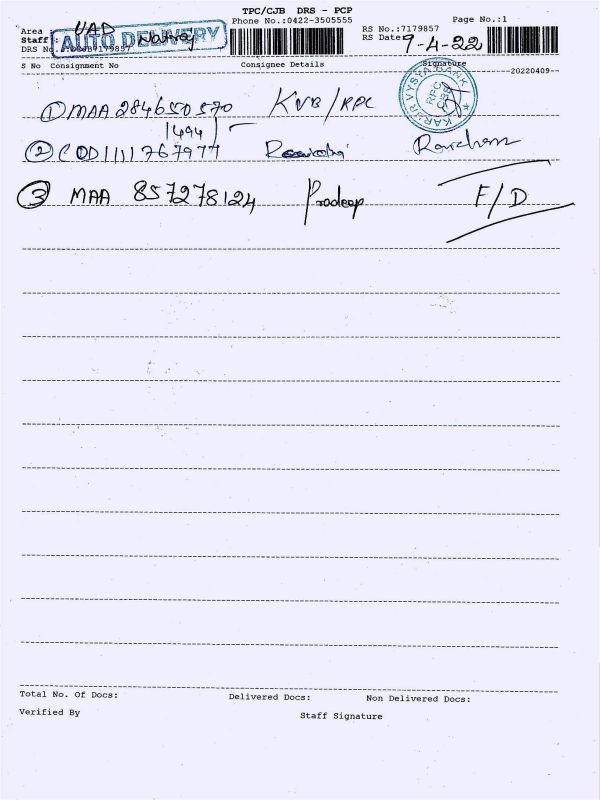 TPC/CJB DRS - PCP
Phone No.:0422-3505555
Page No.:1
Area UAD
Staff :
AUTO DELIVERY
DRS No.
RS No.:7179857
RS Date 7-4-22
S No Consignment No Consignee Details Signature
20220409
KARUR VYSYA BANK
RPC
① MAA 284650570 KVB/RPC
1494/-
② COD1111767977
③ MAA 857278124 Pradeep F/D
Total No. Of Docs: Delivered Docs: Non Delivered Docs:
Verified By Staff Signature